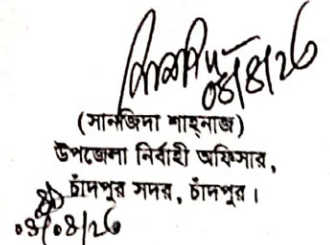 ০৪/৪/২৬
(সানজিদা শাহনাজ)
উপজেলা নির্বাহী অফিসার,
চাঁদপুর সদর, চাঁদপুর।
০৪/০৪/২৬